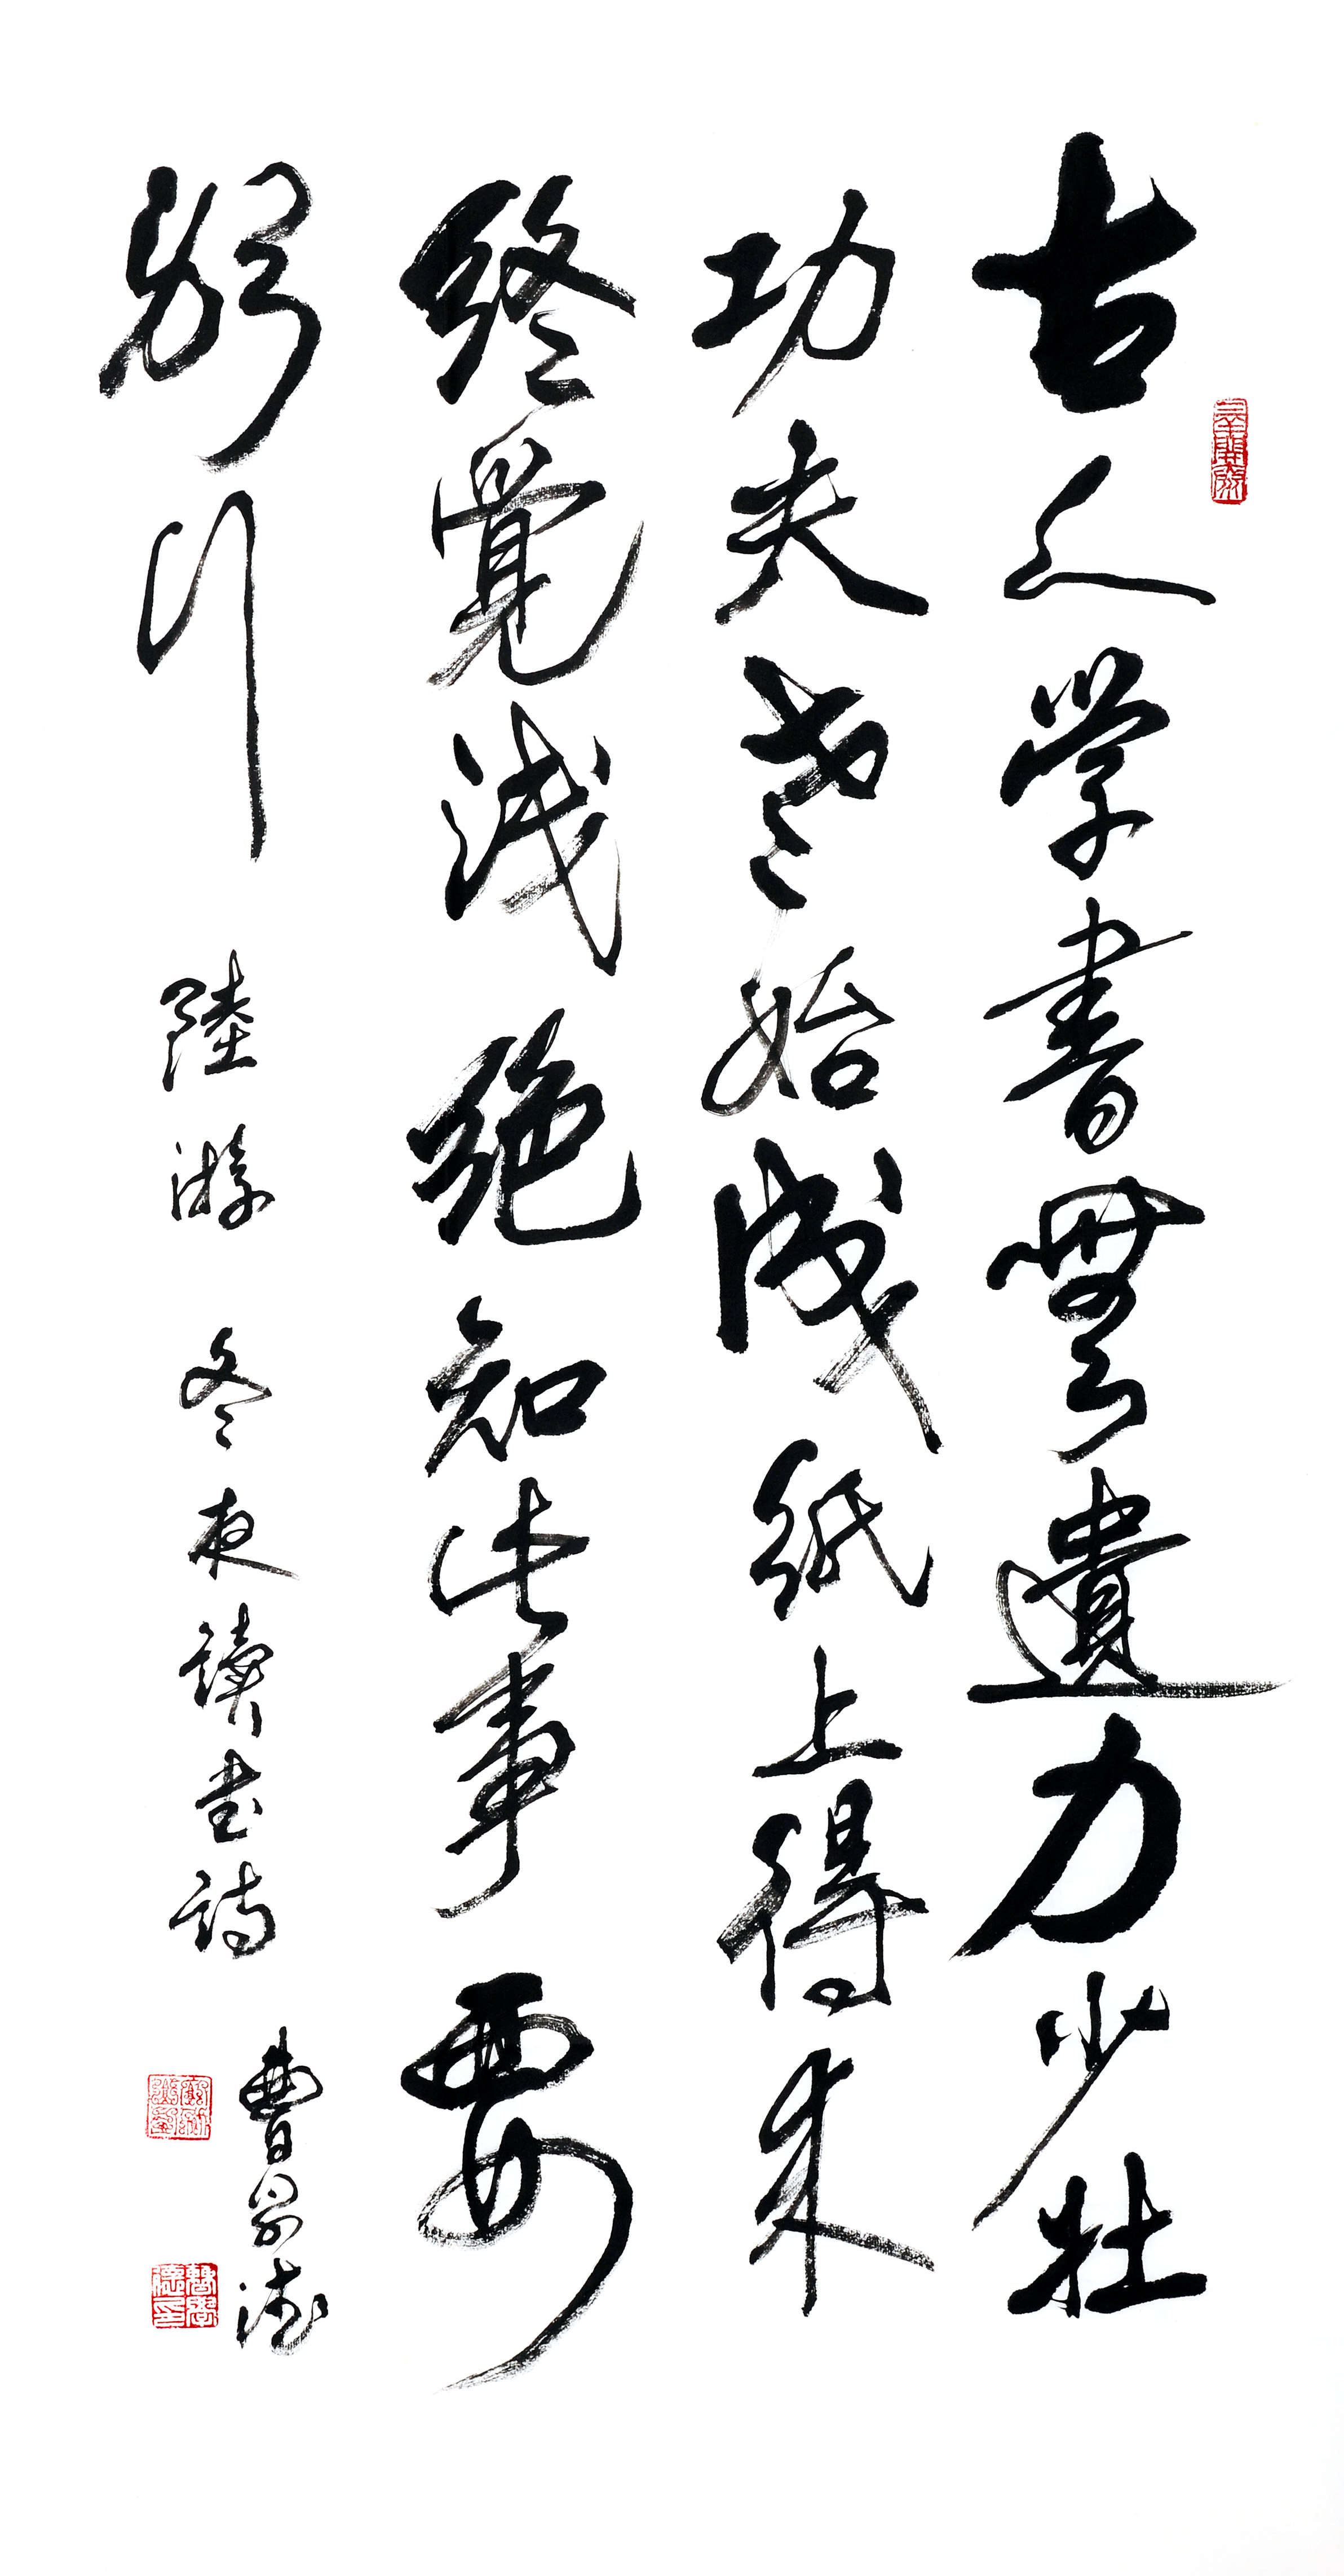 古人学書無遺力少壮
功夫老始成紙上得来
終覺浅絶知此事要
躬行
陸游 冬夜讀書詩
曹景德